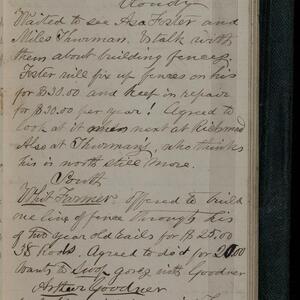 Cloudy
Waited to see Asa Foster and
Miles Thurman. & talk with
them about building fences.
Foster will fix up fences on his
for $30.00 and keep in repair
for $30.00 per year! Agreed to
look at it when next at Richmond
Also at Thurman's, who thinks
his is worth still more.
South
Whit Farmer offered to build
one line of fence through his
of two year old rails for $25.00
38 Rods. Agreed to do it for 20.00
wants to swap gores with Goodner
Arthur Goodner